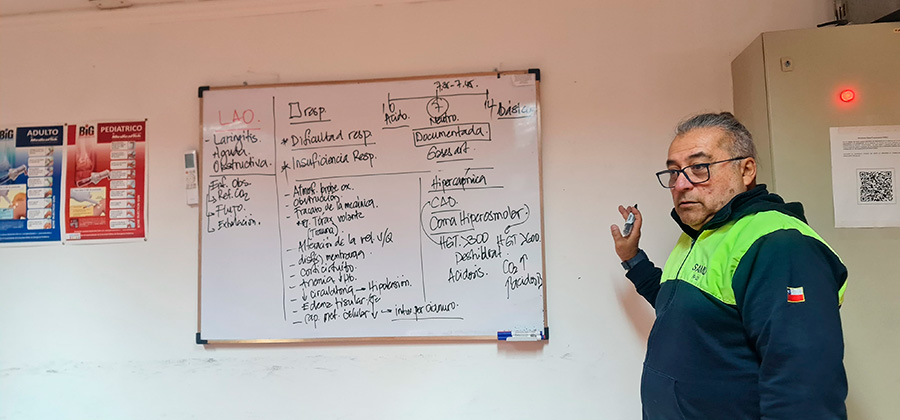 BIG
ADULTO
BIG
PEDIATRICO
LAO.
- Laringitis
Aguda
Obstructiva.
Enf. Obs.
Ret. CO2
Flujo.
Exhalación.
resp.
* Dificultad resp.
* Insuficiencia Resp.
- Atmosf. pobre ox.
- Obstrucción
- Fracaso de la mecánica
Tórax volante
- Alteración de la rel. V/Q
- Corto circuito
- Anemia ↓ Hb.
- ↓ circulatorio → Hipotensión.
- Edema tisular
- cap. met. celular ↓ → intox. por cianuro.
7.35-7.45.
0 7 14
Acido. Neutro. Básico
Documentada.
Gases art.
Hipercápnica
- CAD
Coma Hiperosmolar.
HGT >300 HGT >600
Deshidrat.
Acidosis. CO2 ↑
SAMU